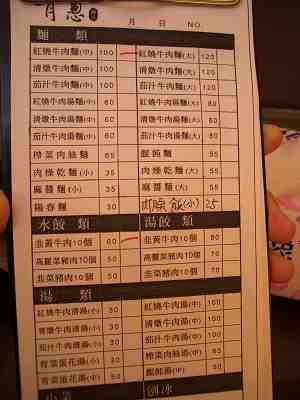 月 日 NO.
麵 類
紅燒牛肉麵(中) 100 紅燒牛肉麵(大) 120
清燉牛肉麵(中) 100 清燉牛肉麵(大) 120
茄汁牛肉麵(中) 100 茄汁牛肉麵(大) 120
紅燒牛肉湯麵(中) 60 紅燒牛肉湯麵(大) 80
清燉牛肉湯麵(中) 60 清燉牛肉湯麵(大) 80
茄汁牛肉湯麵(中) 60 茄汁牛肉湯麵(大) 80
榨菜肉絲麵 65 餛飩麵 55
肉燥乾麵(小) 35 肉燥乾麵(大) 45
麻醬麵(小) 35 麻醬麵(大) 45
陽春麵 30 肉臊飯(小) 25
水餃 類 湯餃 類
韭黃牛肉10個 60 韭黃牛肉10個 80
高麗菜豬肉10個 50 高麗菜豬肉10個 70
韭菜豬肉10個 50 韭菜豬肉10個 70
湯 類
紅燒牛肉湯(中) 100
紅燒牛肉清湯(小) 30 清燉牛肉湯(中) 100
清燉牛肉清湯(小) 30 茄汁牛肉湯(中) 100
茄汁牛肉清湯(小) 30 榨菜肉絲湯(中)
青菜蛋花湯(小) 30 餛飩湯(中)
青菜蛋花湯(中) 50 刨冰